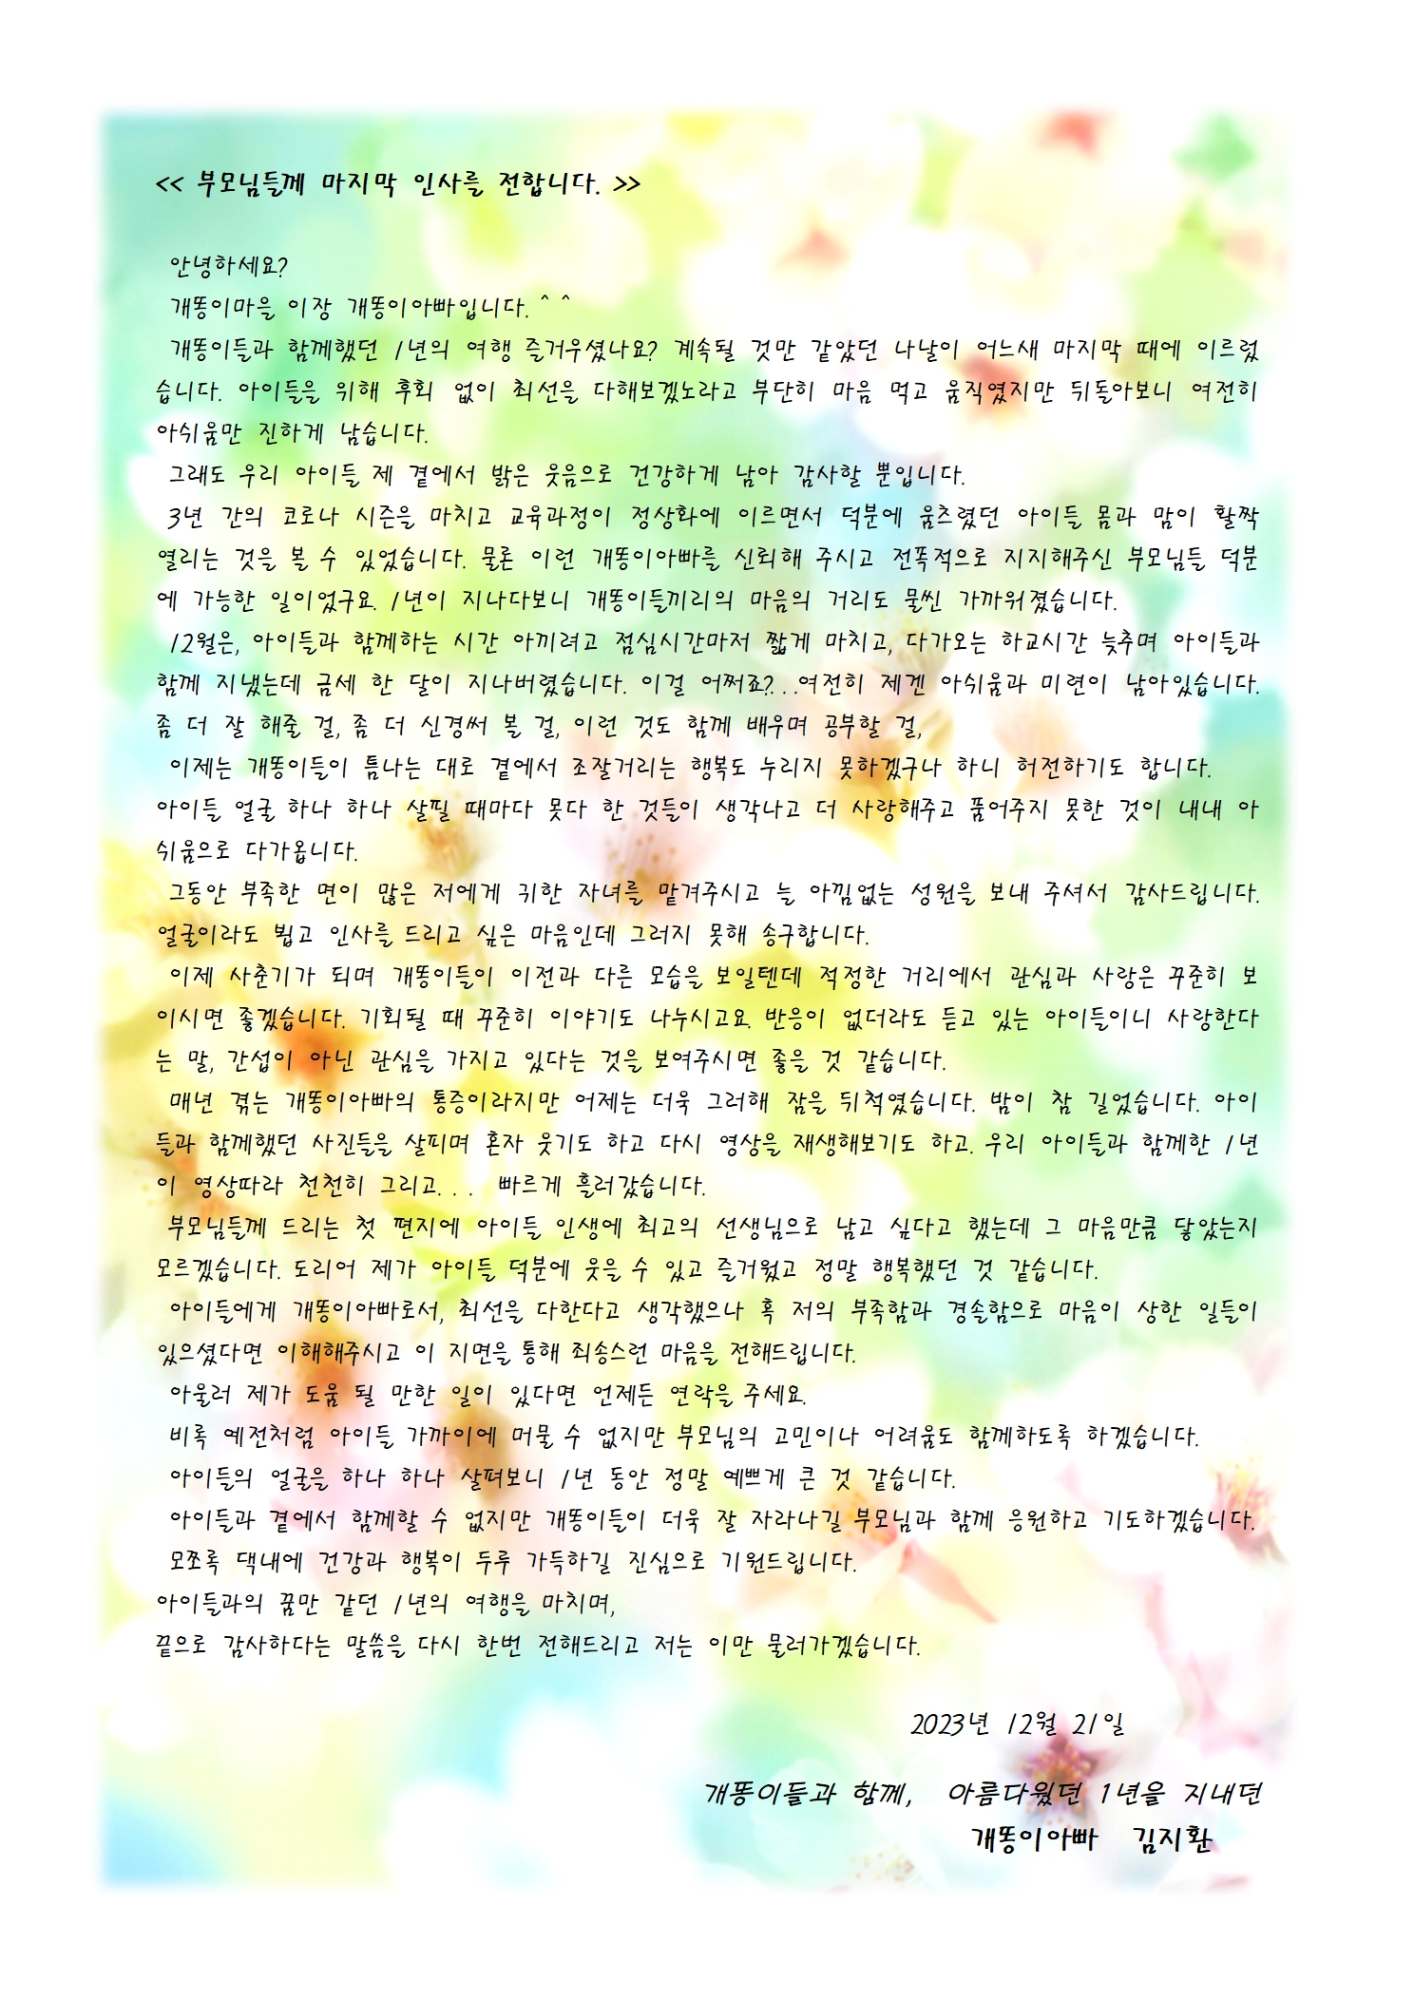 << 부모님들께 마지막 인사를 전합니다. >>
안녕하세요?
개똥이마을 이장 개똥이아빠입니다. ^ ^
개똥이들과 함께했던 1년의 여행 즐거우셨나요? 계속될 것만 같았던 나날이 어느새 마지막 때에 이르렀
습니다. 아이들을 위해 후회 없이 최선을 다해보겠노라고 부단히 마음 먹고 움직였지만 뒤돌아보니 여전히
아쉬움만 진하게 남습니다.
그래도 우리 아이들 제 곁에서 밝은 웃음으로 건강하게 남아 감사할 뿐입니다.
3년 간의 코로나 시즌을 마치고 교육과정이 정상화에 이르면서 덕분에 움츠렸던 아이들 몸과 맘이 활짝
열리는 것을 볼 수 있었습니다. 물론 이런 개똥이아빠를 신뢰해 주시고 전폭적으로 지지해주신 부모님들 덕분
에 가능한 일이었구요. 1년이 지나다보니 개똥이들끼리의 마음의 거리도 물씬 가까워졌습니다.
12월은, 아이들과 함께하는 시간 아끼려고 점심시간마저 짧게 마치고, 다가오는 하교시간 늦추며 아이들과
함께 지냈는데 금세 한 달이 지나버렸습니다. 이걸 어쩌죠?...여전히 제겐 아쉬움과 미련이 남아있습니다.
좀 더 잘 해줄 걸, 좀 더 신경써 볼 걸, 이런 것도 함께 배우며 공부할 걸,
이제는 개똥이들이 틈나는 대로 곁에서 조잘거리는 행복도 누리지 못하겠구나 하니 허전하기도 합니다.
아이들 얼굴 하나 하나 살필 때마다 못다 한 것들이 생각나고 더 사랑해주고 품어주지 못한 것이 내내 아
쉬움으로 다가옵니다.
그동안 부족한 면이 많은 저에게 귀한 자녀를 맡겨주시고 늘 아낌없는 성원을 보내 주셔서 감사드립니다.
얼굴이라도 뵙고 인사를 드리고 싶은 마음인데 그러지 못해 송구합니다.
이제 사춘기가 되며 개똥이들이 이전과 다른 모습을 보일텐데 적정한 거리에서 관심과 사랑은 꾸준히 보
이시면 좋겠습니다. 기회될 때 꾸준히 이야기도 나누시고요. 반응이 없더라도 듣고 있는 아이들이니 사랑한다
는 말, 간섭이 아닌 관심을 가지고 있다는 것을 보여주시면 좋을 것 같습니다.
매년 겪는 개똥이아빠의 통증이라지만 어제는 더욱 그러해 잠을 뒤척였습니다. 밤이 참 길었습니다. 아이
들과 함께했던 사진들을 살피며 혼자 웃기도 하고 다시 영상을 재생해보기도 하고. 우리 아이들과 함께한 1년
이 영상따라 천천히 그리고... 빠르게 흘러갔습니다.
부모님들께 드리는 첫 편지에 아이들 인생에 최고의 선생님으로 남고 싶다고 했는데 그 마음만큼 닿았는지
모르겠습니다. 도리어 제가 아이들 덕분에 웃을 수 있고 즐거웠고 정말 행복했던 것 같습니다.
아이들에게 개똥이아빠로서, 최선을 다한다고 생각했으나 혹 저의 부족함과 경솔함으로 마음이 상한 일들이
있으셨다면 이해해주시고 이 지면을 통해 죄송스런 마음을 전해드립니다.
아울러 제가 도움 될 만한 일이 있다면 언제든 연락을 주세요.
비록 예전처럼 아이들 가까이에 머물 수 없지만 부모님의 고민이나 어려움도 함께하도록 하겠습니다.
아이들의 얼굴을 하나 하나 살펴보니 1년 동안 정말 예쁘게 큰 것 같습니다.
아이들과 곁에서 함께할 수 없지만 개똥이들이 더욱 잘 자라나길 부모님과 함께 응원하고 기도하겠습니다.
모쪼록 댁내에 건강과 행복이 두루 가득하길 진심으로 기원드립니다.
아이들과의 꿈만 같던 1년의 여행을 마치며,
끝으로 감사하다는 말씀을 다시 한번 전해드리고 저는 이만 물러가겠습니다.
2023년 12월 21일
개똥이들과 함께, 아름다웠던 1년을 지내던
개똥이아빠 김지환